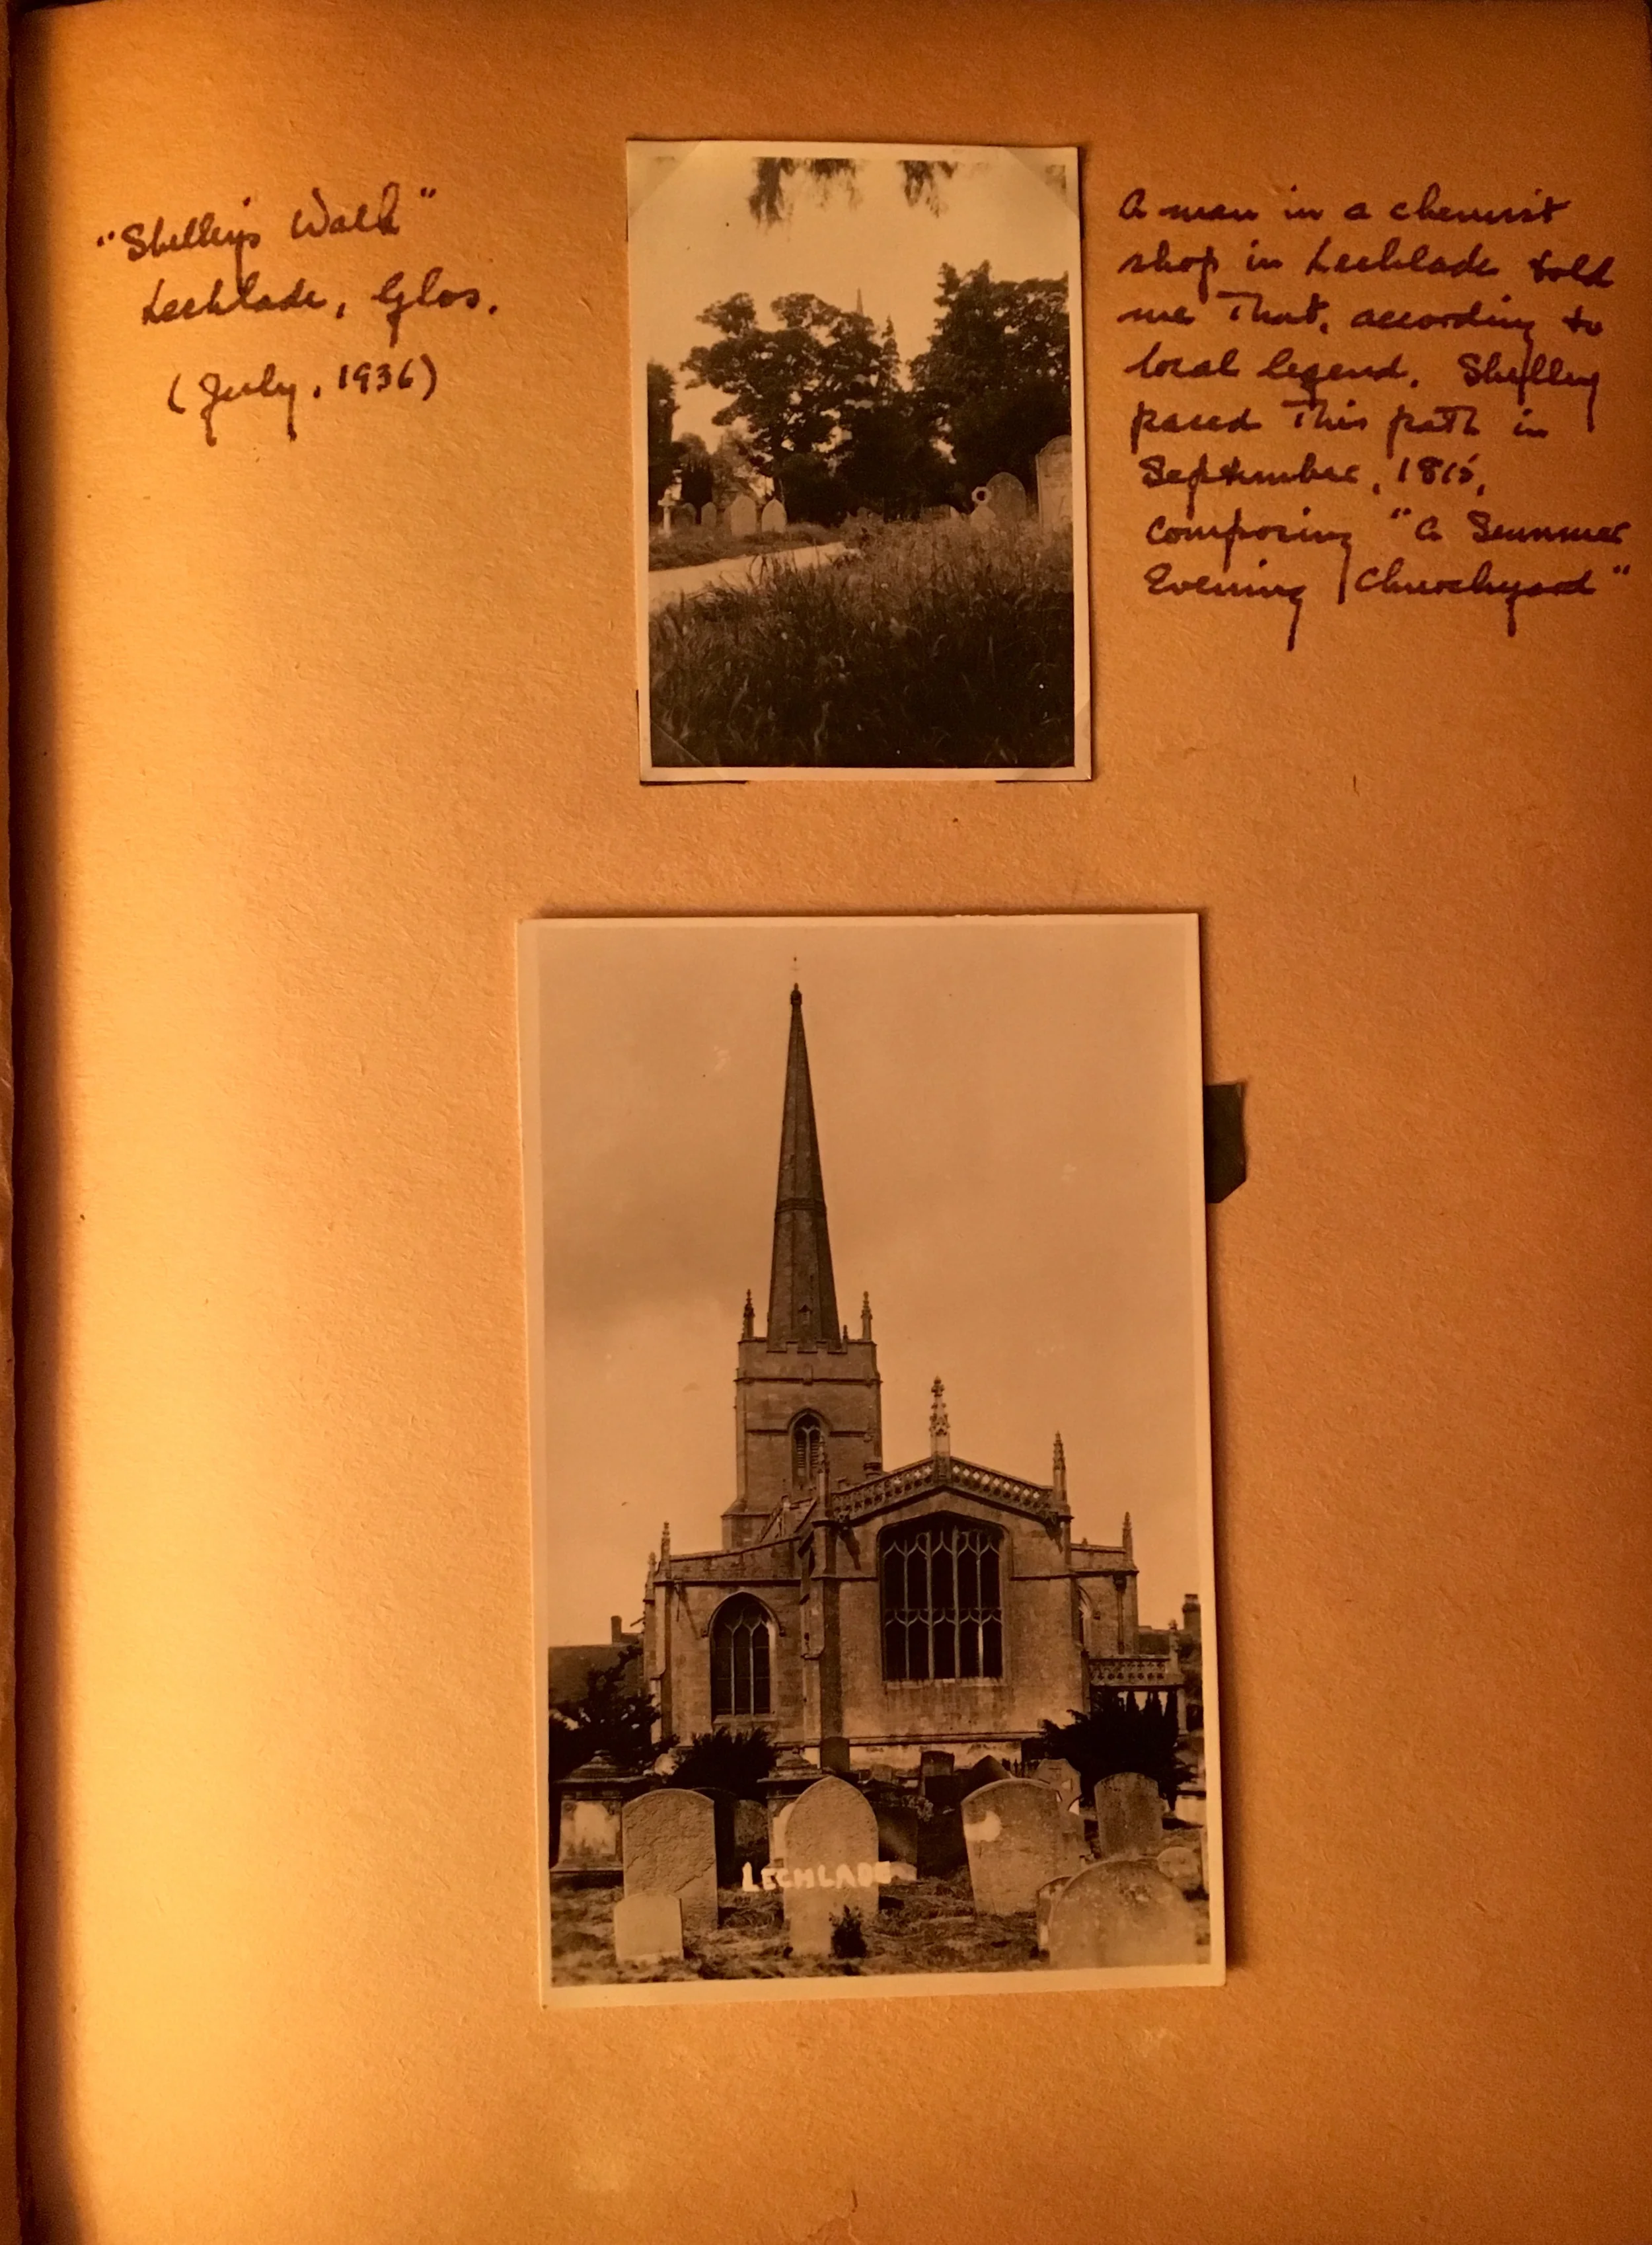 "Shelley's Walk"
Lechlade, Glos.
(July, 1936)
A man in a chemist
shop in Lechlade told
me that, according to
local legend, Shelley
paced this path in
September, 1815,
composing "A Summer
Evening Churchyard"
LECHLADE